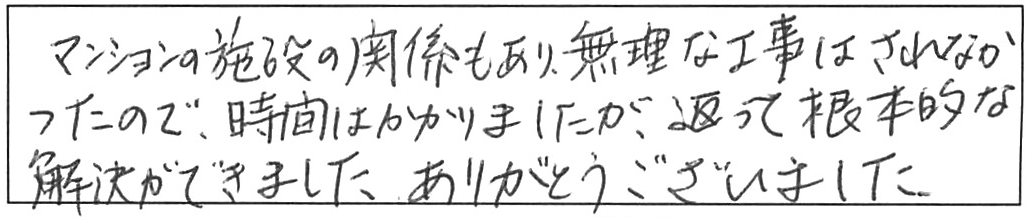 マンションの施設の関係もあり、無理な工事はされなか
ったので、時間はかかりましたが、返って根本的な
解決ができました、ありがとうございました